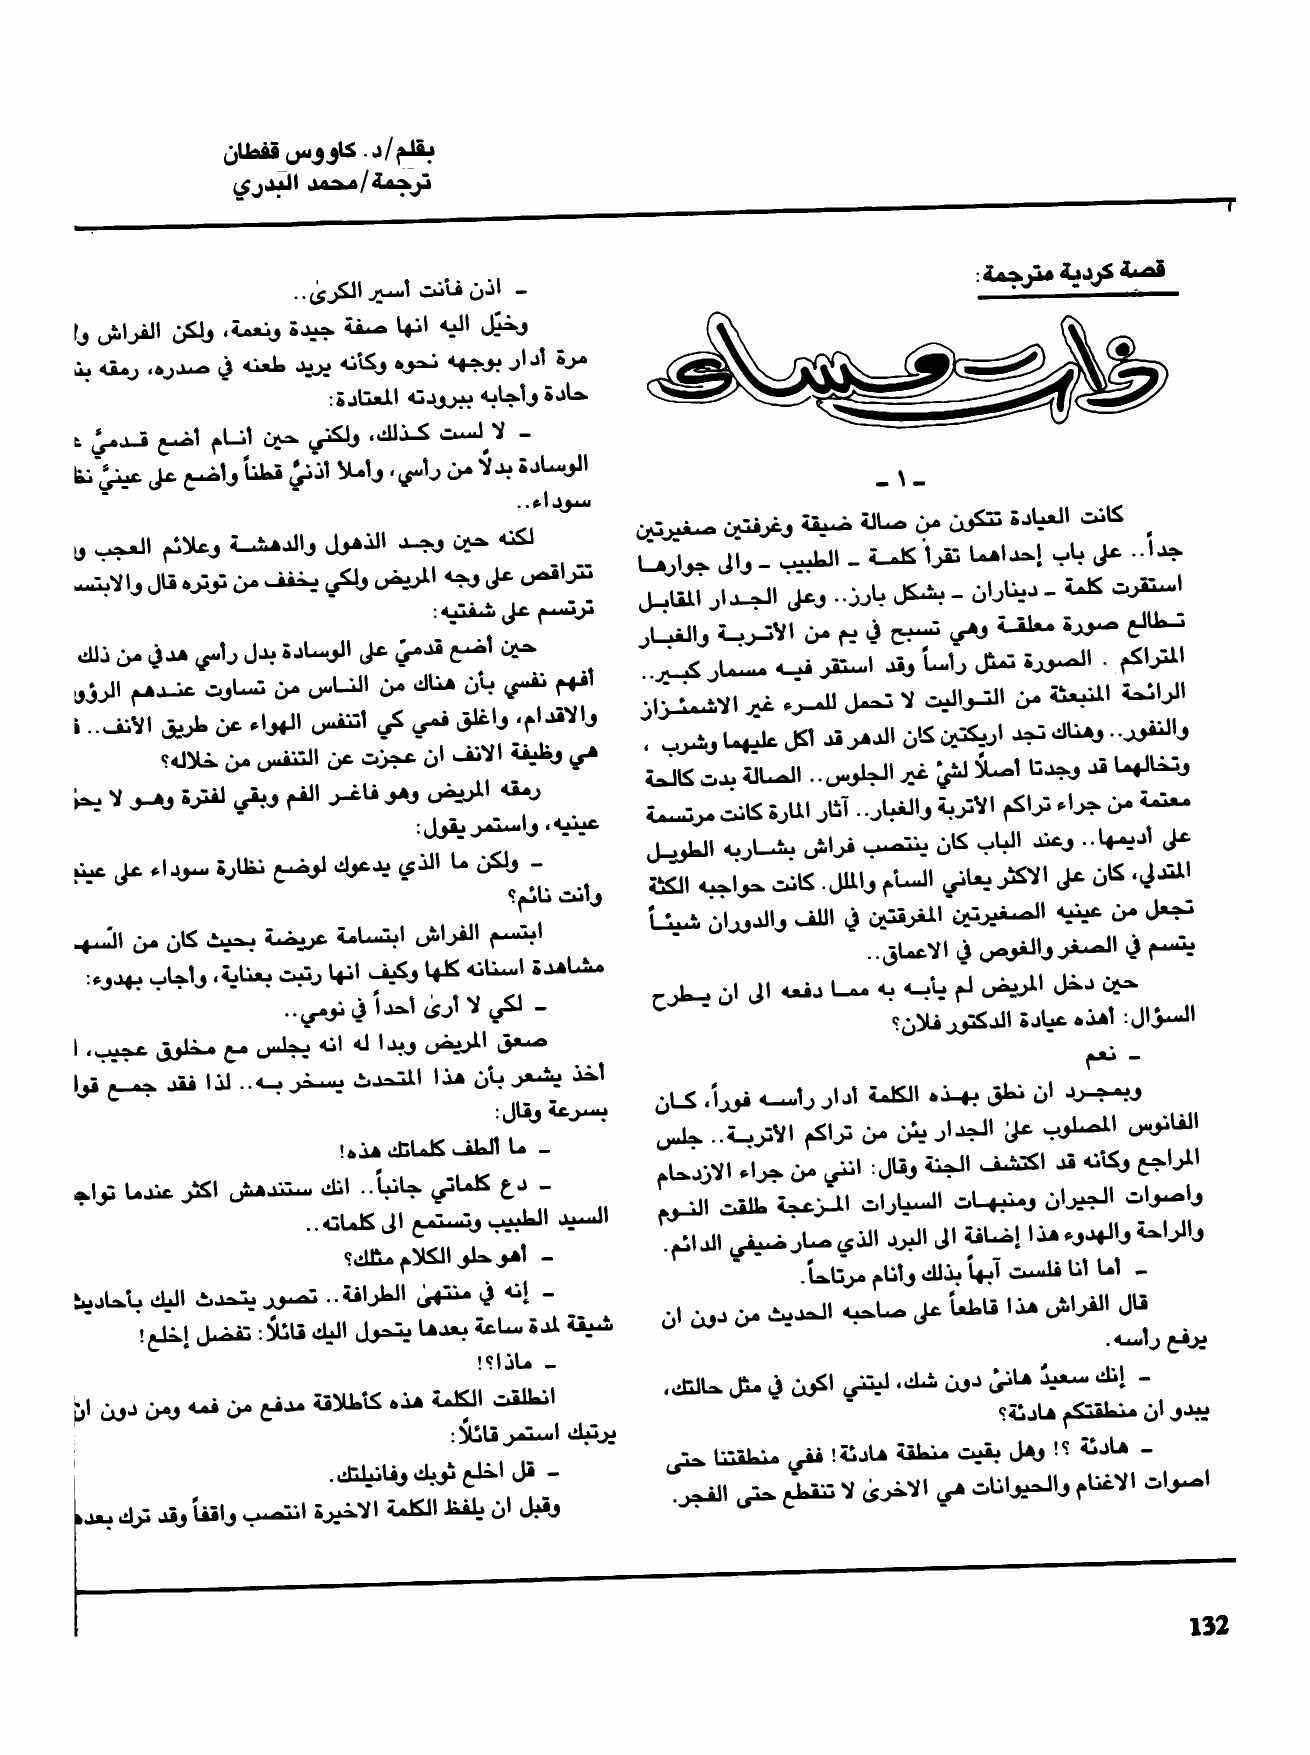 بقلم/د. كاووس قفطان
ترجمة/محمد البدري
قصة كردية مترجمة:
ذات مساء
- ١ -
كانت العيادة تتكون من صالة ضيقة وغرفتين صغيرتين
جداً.. على باب إحداهما تقرأ كلمة - الطبيب - والى جوارها
استقرت كلمة - ديناران - بشكل بارز.. وعلى الجدار المقابل
تطالع صورة معلقة وهي تسبح في يم من الأتربة والغبار
المتراكم . الصورة تمثل رأساً وقد استقر فيه مسمار كبير..
الرائحة المنبعثة من التواليت لا تحمل للمرء غير الاشمئزاز
والنفور.. وهناك تجد اريكتين كان الدهر قد أكل عليهما وشرب ،
وتخالهما قد وجدتا أصلاً لشيْ غير الجلوس.. الصالة بدت كالحة
معتمة من جراء تراكم الأتربة والغبار.. آثار المارة كانت مرتسمة
على أديمها.. وعند الباب كان ينتصب فراش بشاربه الطويل
المتدلي، كان على الاكثر يعاني السأم والملل. كانت حواجبه الكثة
تجعل من عينيه الصغيرتين المغرقتين في اللف والدوران شيئاً
يتسم في الصغر والغوص في الاعماق..
حين دخل المريض لم يأبه به مما دفعه الى ان يطرح
السؤال: أهذه عيادة الدكتور فلان؟
- نعم
وبمجرد ان نطق بهذه الكلمة أدار رأسه فوراً، كان
الفانوس المصلوب علىٰ الجدار يئن من تراكم الأتربة.. جلس
المراجع وكأنه قد اكتشف الجنة وقال: انني من جراء الازدحام
واصوات الجيران ومنبهات السيارات المزعجة طلقت النوم
والراحة والهدوء هذا إضافة الى البرد الذي صار ضيفي الدائم.
- أما أنا فلست آبهاً بذلك وأنام مرتاحاً.
قال الفراش هذا قاطعاً على صاحبه الحديث من دون ان
يرفع رأسه.
- إنك سعيدٌ هانئ دون شك، ليتني اكون في مثل حالتك،
يبدو ان منطقتكم هادئة؟
- هادئة ؟! وهل بقيت منطقة هادئة! ففي منطقتنا حتى
اصوات الاغنام والحيوانات هي الاخرىٰ لا تنقطع حتى الفجر.
- اذن فأنت أسير الكرىٰ..
وخيّل اليه انها صفة جيدة ونعمة، ولكن الفراش
مرة أدار بوجهه نحوه وكأنه يريد طعنه في صدره، رمقه
حادة وأجابه ببرودته المعتادة:
- لا لست كذلك، ولكني حين أنام أضع قدميَّ
الوسادة بدلاً من رأسي، وأملأ أذنيَّ قطناً وأضع على عينيَّ
سوداء..
لكنه حين وجد الذهول والدهشة وعلائم العجب
تتراقص على وجه المريض ولكي يخفف من توتره قال
ترتسم على شفتيه:
حين أضع قدميّ على الوسادة بدل رأسي هدفي من ذلك
أفهم نفسي بأن هناك من الناس من تساوت عندهم
والاقدام، واغلق فمي كي أتنفس الهواء عن طريق الأنف..
هي وظيفة الانف ان عجزت عن التنفس من خلاله؟
رمقه المريض وهو فاغر الفم وبقي لفترة وهو لا
عينيه، واستمر يقول:
- ولكن ما الذي يدعوك لوضع نظارة سوداء على
وأنت نائم؟
ابتسم الفراش ابتسامة عريضة بحيث كان من
مشاهدة اسنانه كلها وكيف انها رتبت بعناية، وأجاب بهدوء:
- لكي لا أرىٰ أحداً في نومي..
صعق المريض وبدا له انه يجلس مع مخلوق عجيب،
أخذ يشعر بأن هذا المتحدث يسخر به.. لذا فقد جمع
بسرعة وقال:
- ما ألطف كلماتك هذه!
- دع كلماتي جانباً.. انك ستندهش اكثر عندما
السيد الطبيب وتستمع الى كلماته..
- أهو حلو الكلام مثلك؟
- إنه في منتهىٰ الطرافة.. تصور يتحدث اليك
شيقة لمدة ساعة بعدها يتحول اليك قائلاً: تفضل إخلع!
- ماذا؟!
انطلقت الكلمة هذه كأطلاقة مدفع من فمه ومن دون ان
يرتبك استمر قائلاً:
- قل اخلع ثوبك وفانيلتك.
وقبل ان يلفظ الكلمة الاخيرة انتصب واقفاً وقد ترك
132